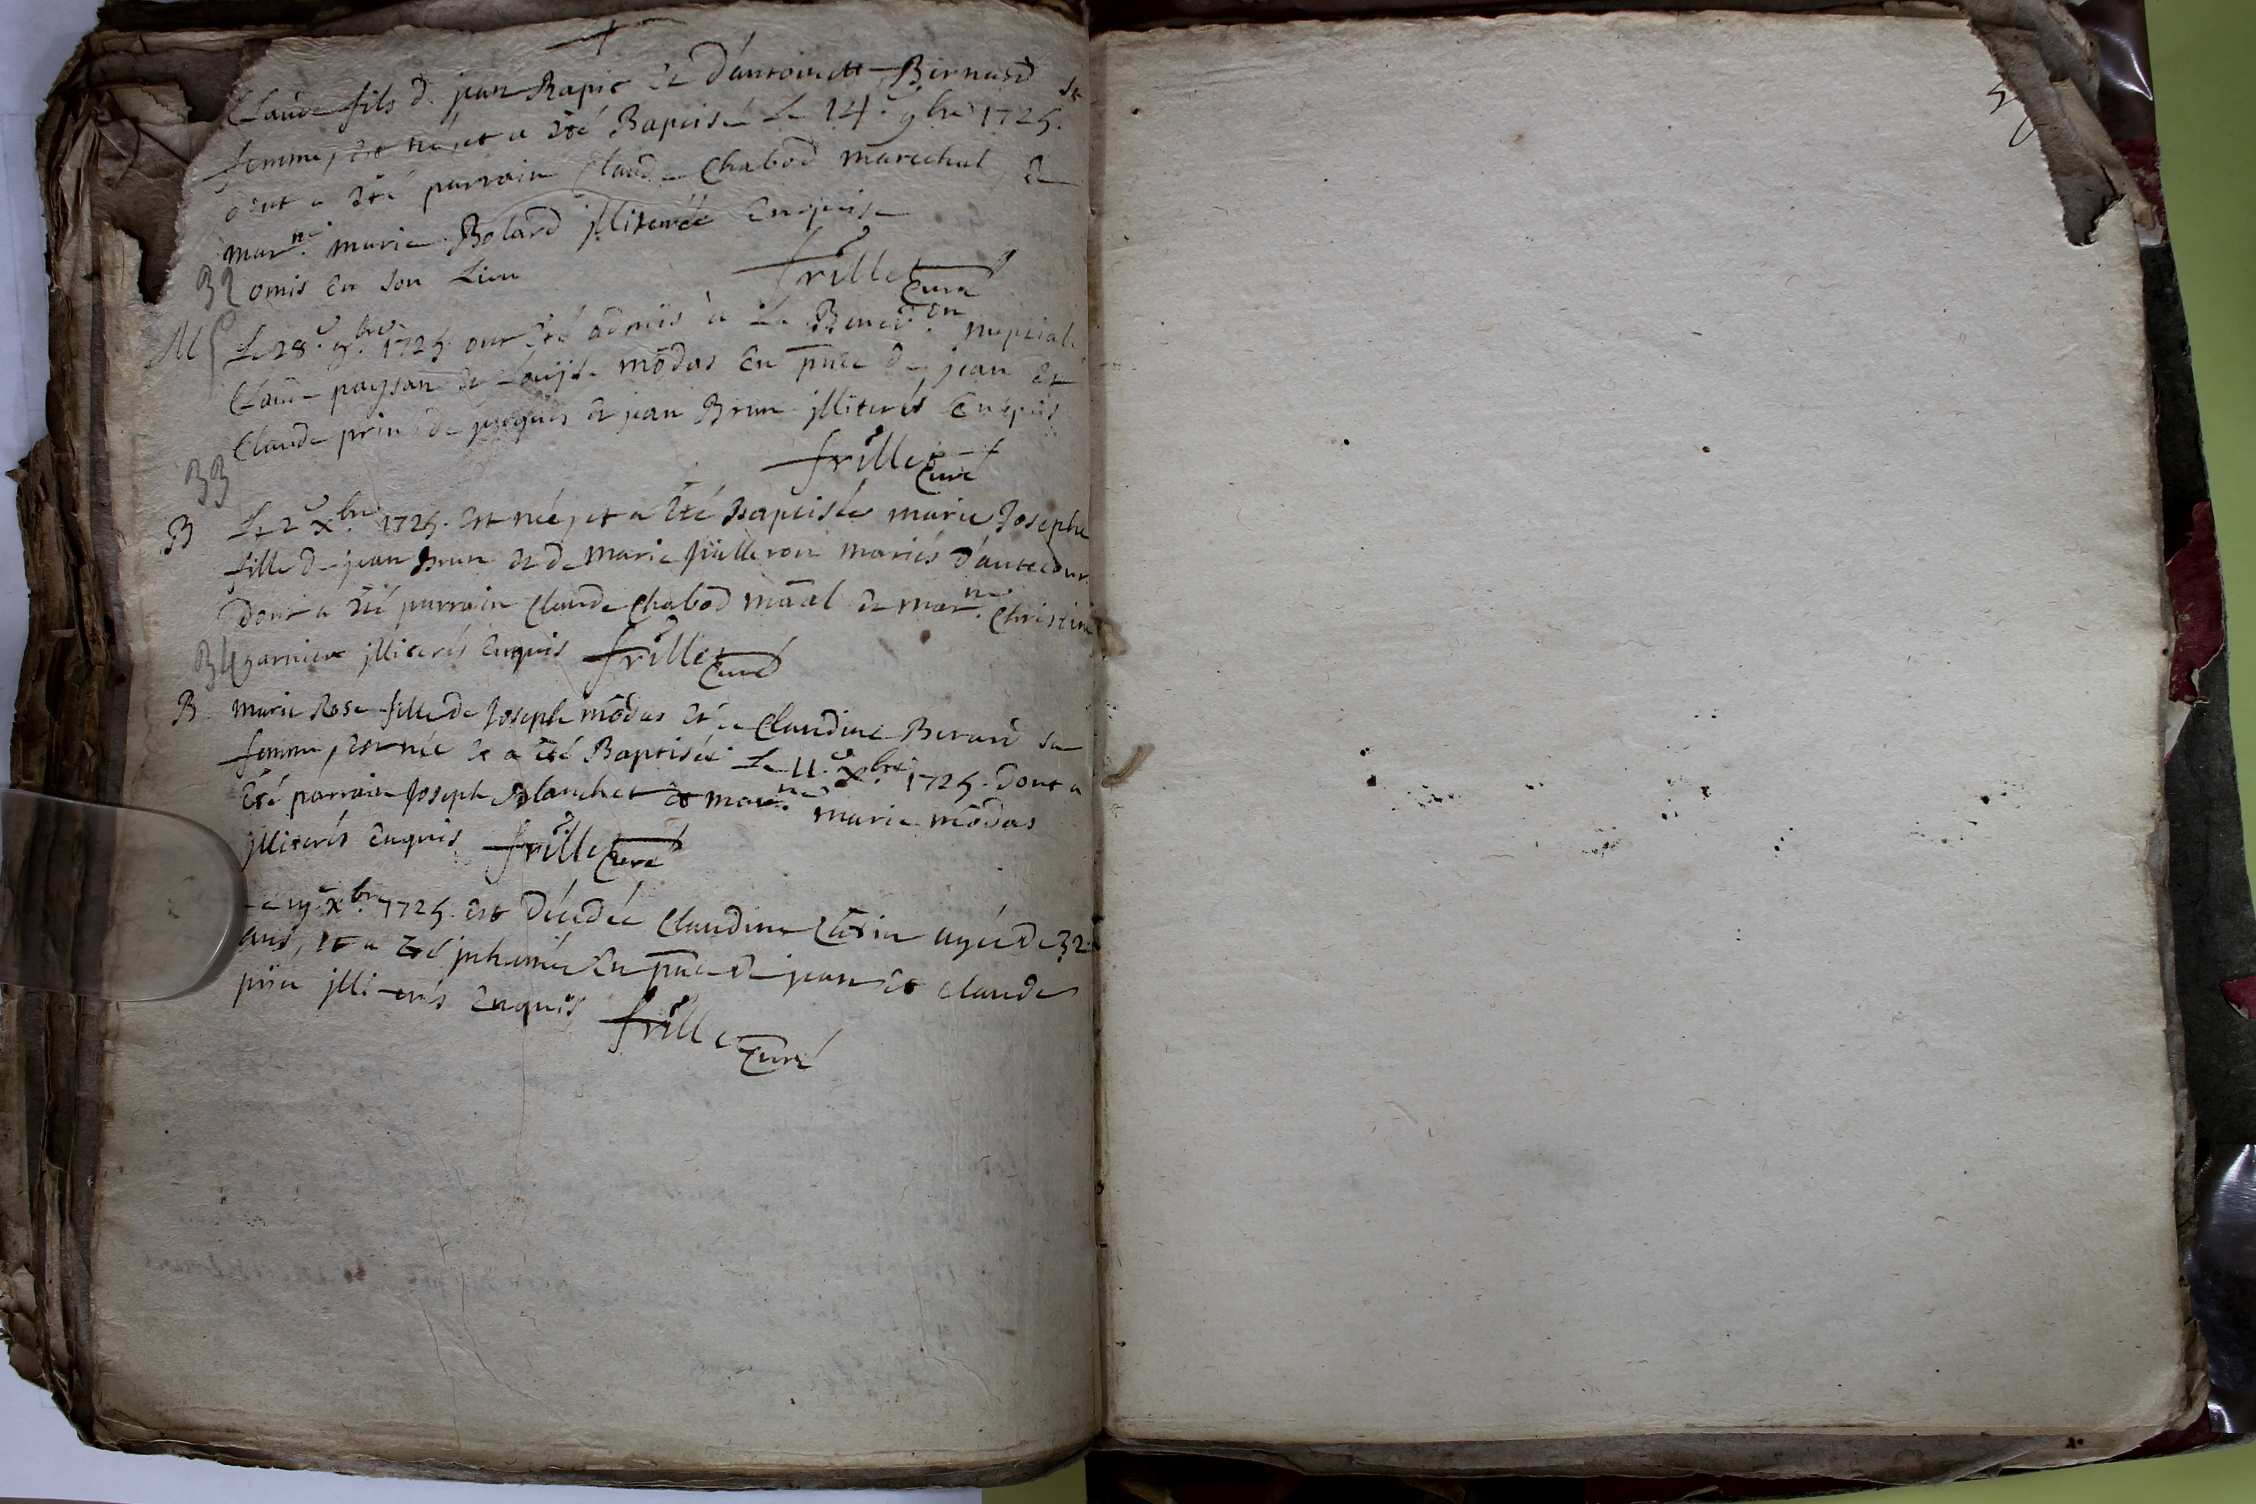 Claude fils de jean Rapic et d'antoinette Bernard sa
femme, est né, et a été Baptisé Le 14.e 9bre 1725.
dont a été parrain Claude Chabod marechal, et
marne. marie Bolard jlliterée Enquise
32 omis en son Lieu frillet Curé
M Le 28.e 9bre. 1725. ont été admis à La Bened.on nuptiale
Claude paysan et Louise mõdas En pñce de jean et
Claude prin de et jean Brun jlliterés Enquis
frillet Curé
33
B Le 2e Xbre. 1725. est née, et a été Baptisée marie Josephe
fille de jean Brun et de Marie mariés d'antecour
Dont a été parrain Claude Chabod mãal et marne. Christine
34 garnier jlliterés Enquis frillet Curé
B marie Rose fille de Joseph mõdas et de Claudine Berard sa
femme, est née et a été Baptisée Le 11.e Xbre. 1725. Dont a
Eté parrain Joseph Blanchet et marne. marie mõdas
jlliterés Enquis frillet Curé
Le Xbre. 1725. est décédée Claudine agée de 32
ans, et a été jnhumée En pñce de jean et claude
jlliterés Enquis frillet Curé